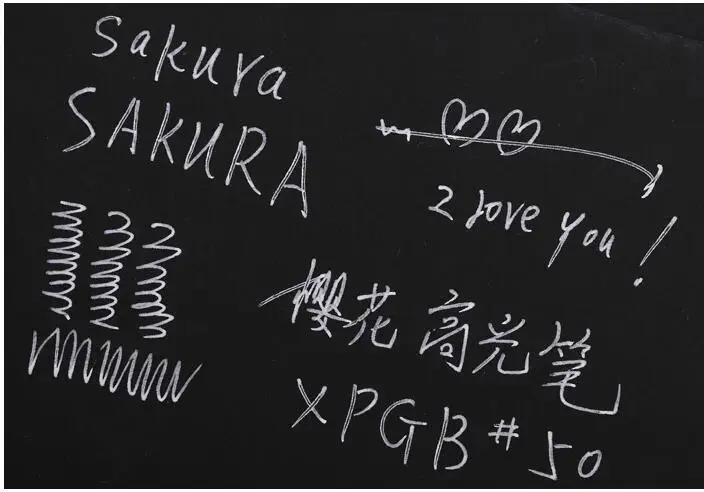 Sakura
SAKURA
I love you!
樱花高光笔
XPGB#50